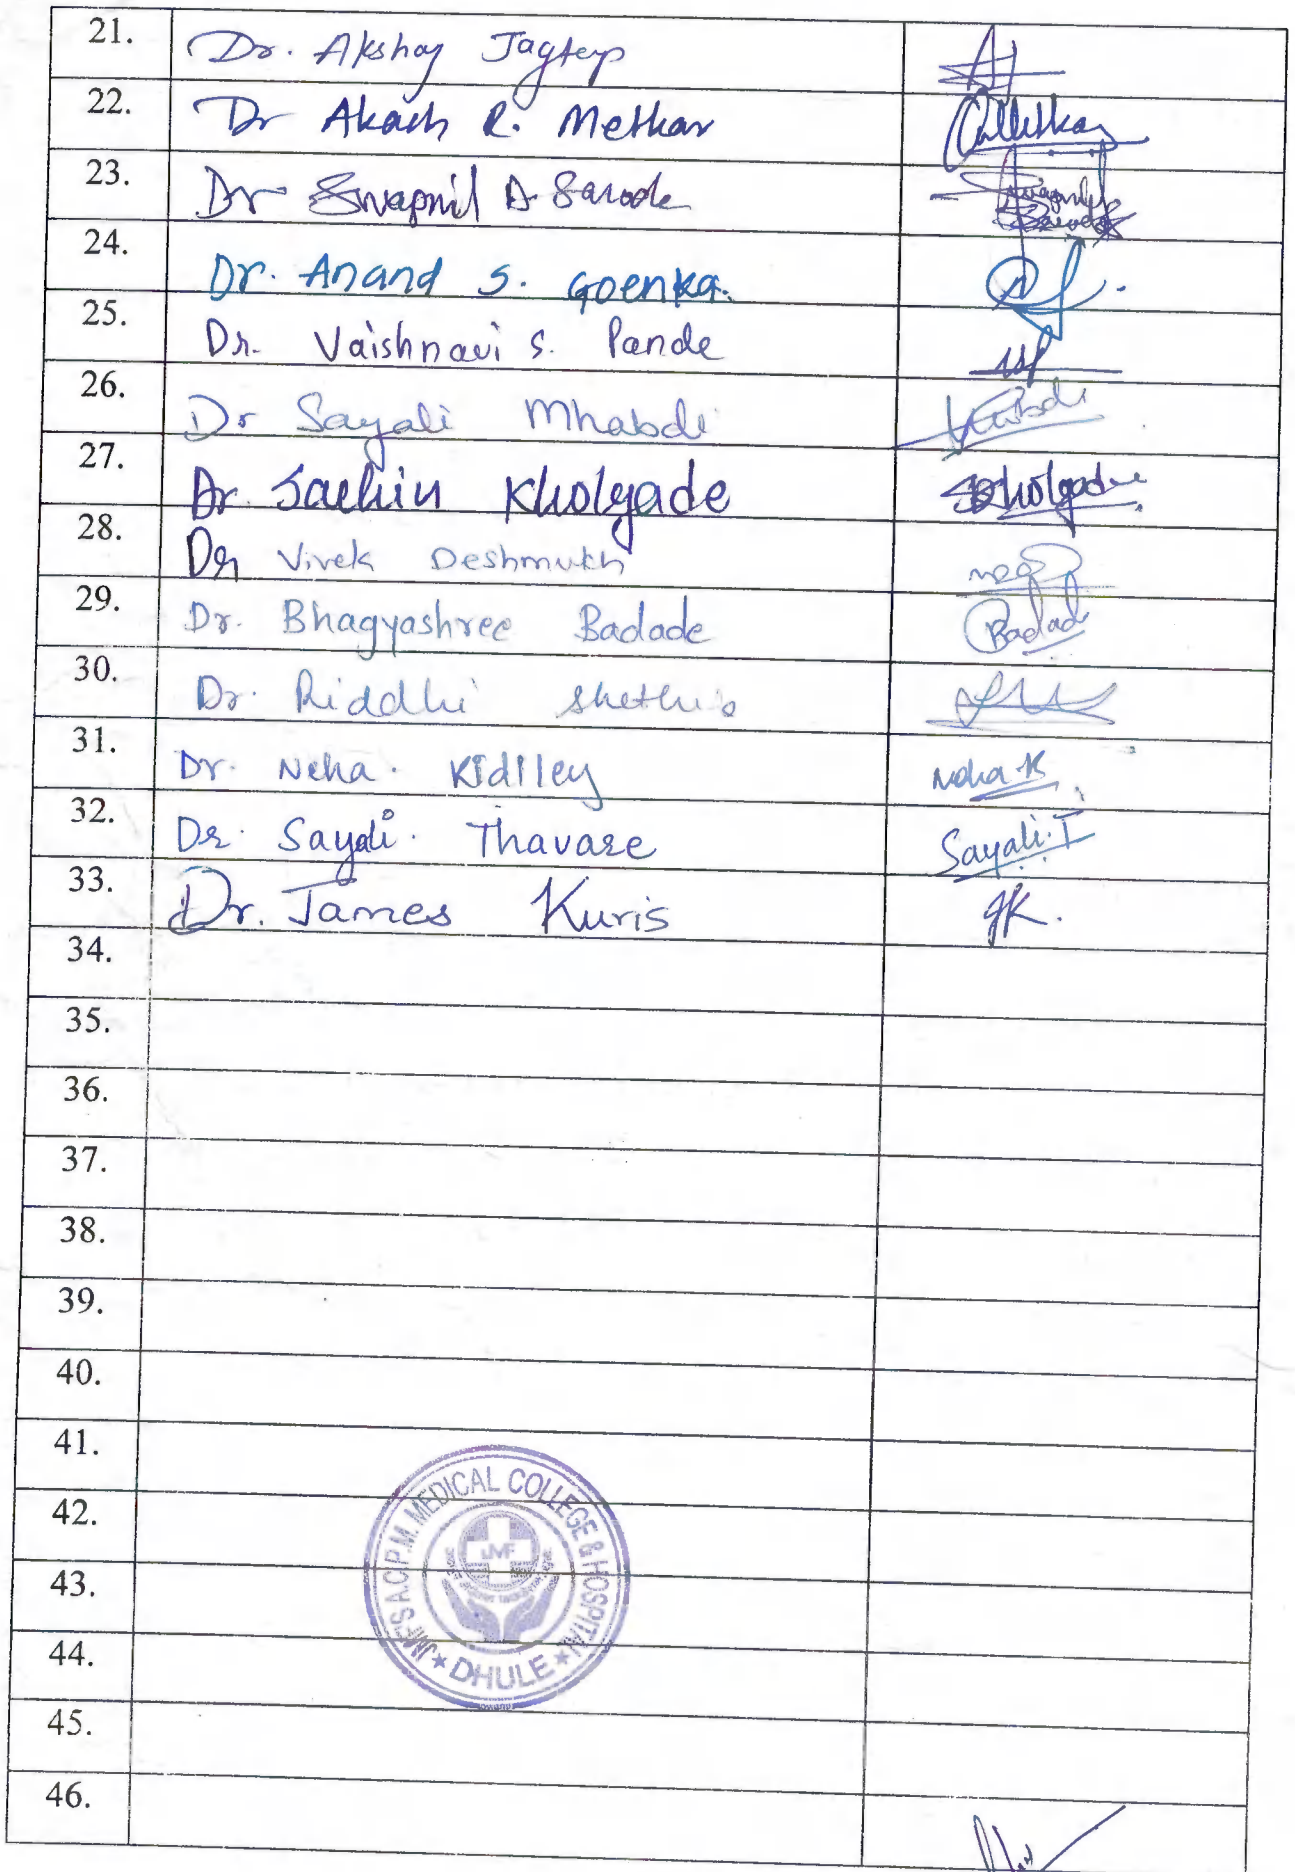 21. Dr. Akshay Jagtap
22. Dr Akash R. Metkar
23. Dr Swapnil D Sarode
24. Dr. Anand S. Goenka.
25. Dr. Vaishnavi S. Pande
26. Dr Sayali Mhabdi
27. Dr. Sachin Kholgade Kholgade
28. Dr Vivek Deshmukh
29. Dr. Bhagyashree Badade Badade
30. Dr. Riddhi
31. Dr. Neha. Kidiley Neha K
32. Dr. Sayali. Thavare Sayali.T
33. Dr. James Kuris JK.
34.
35.
36.
37.
38.
39.
40.
41.
42.
43.
44.
45.
46.
JMF'S A.C.P.M. MEDICAL COLLEGE & HOSPITAL
JMF
★ DHULE ★